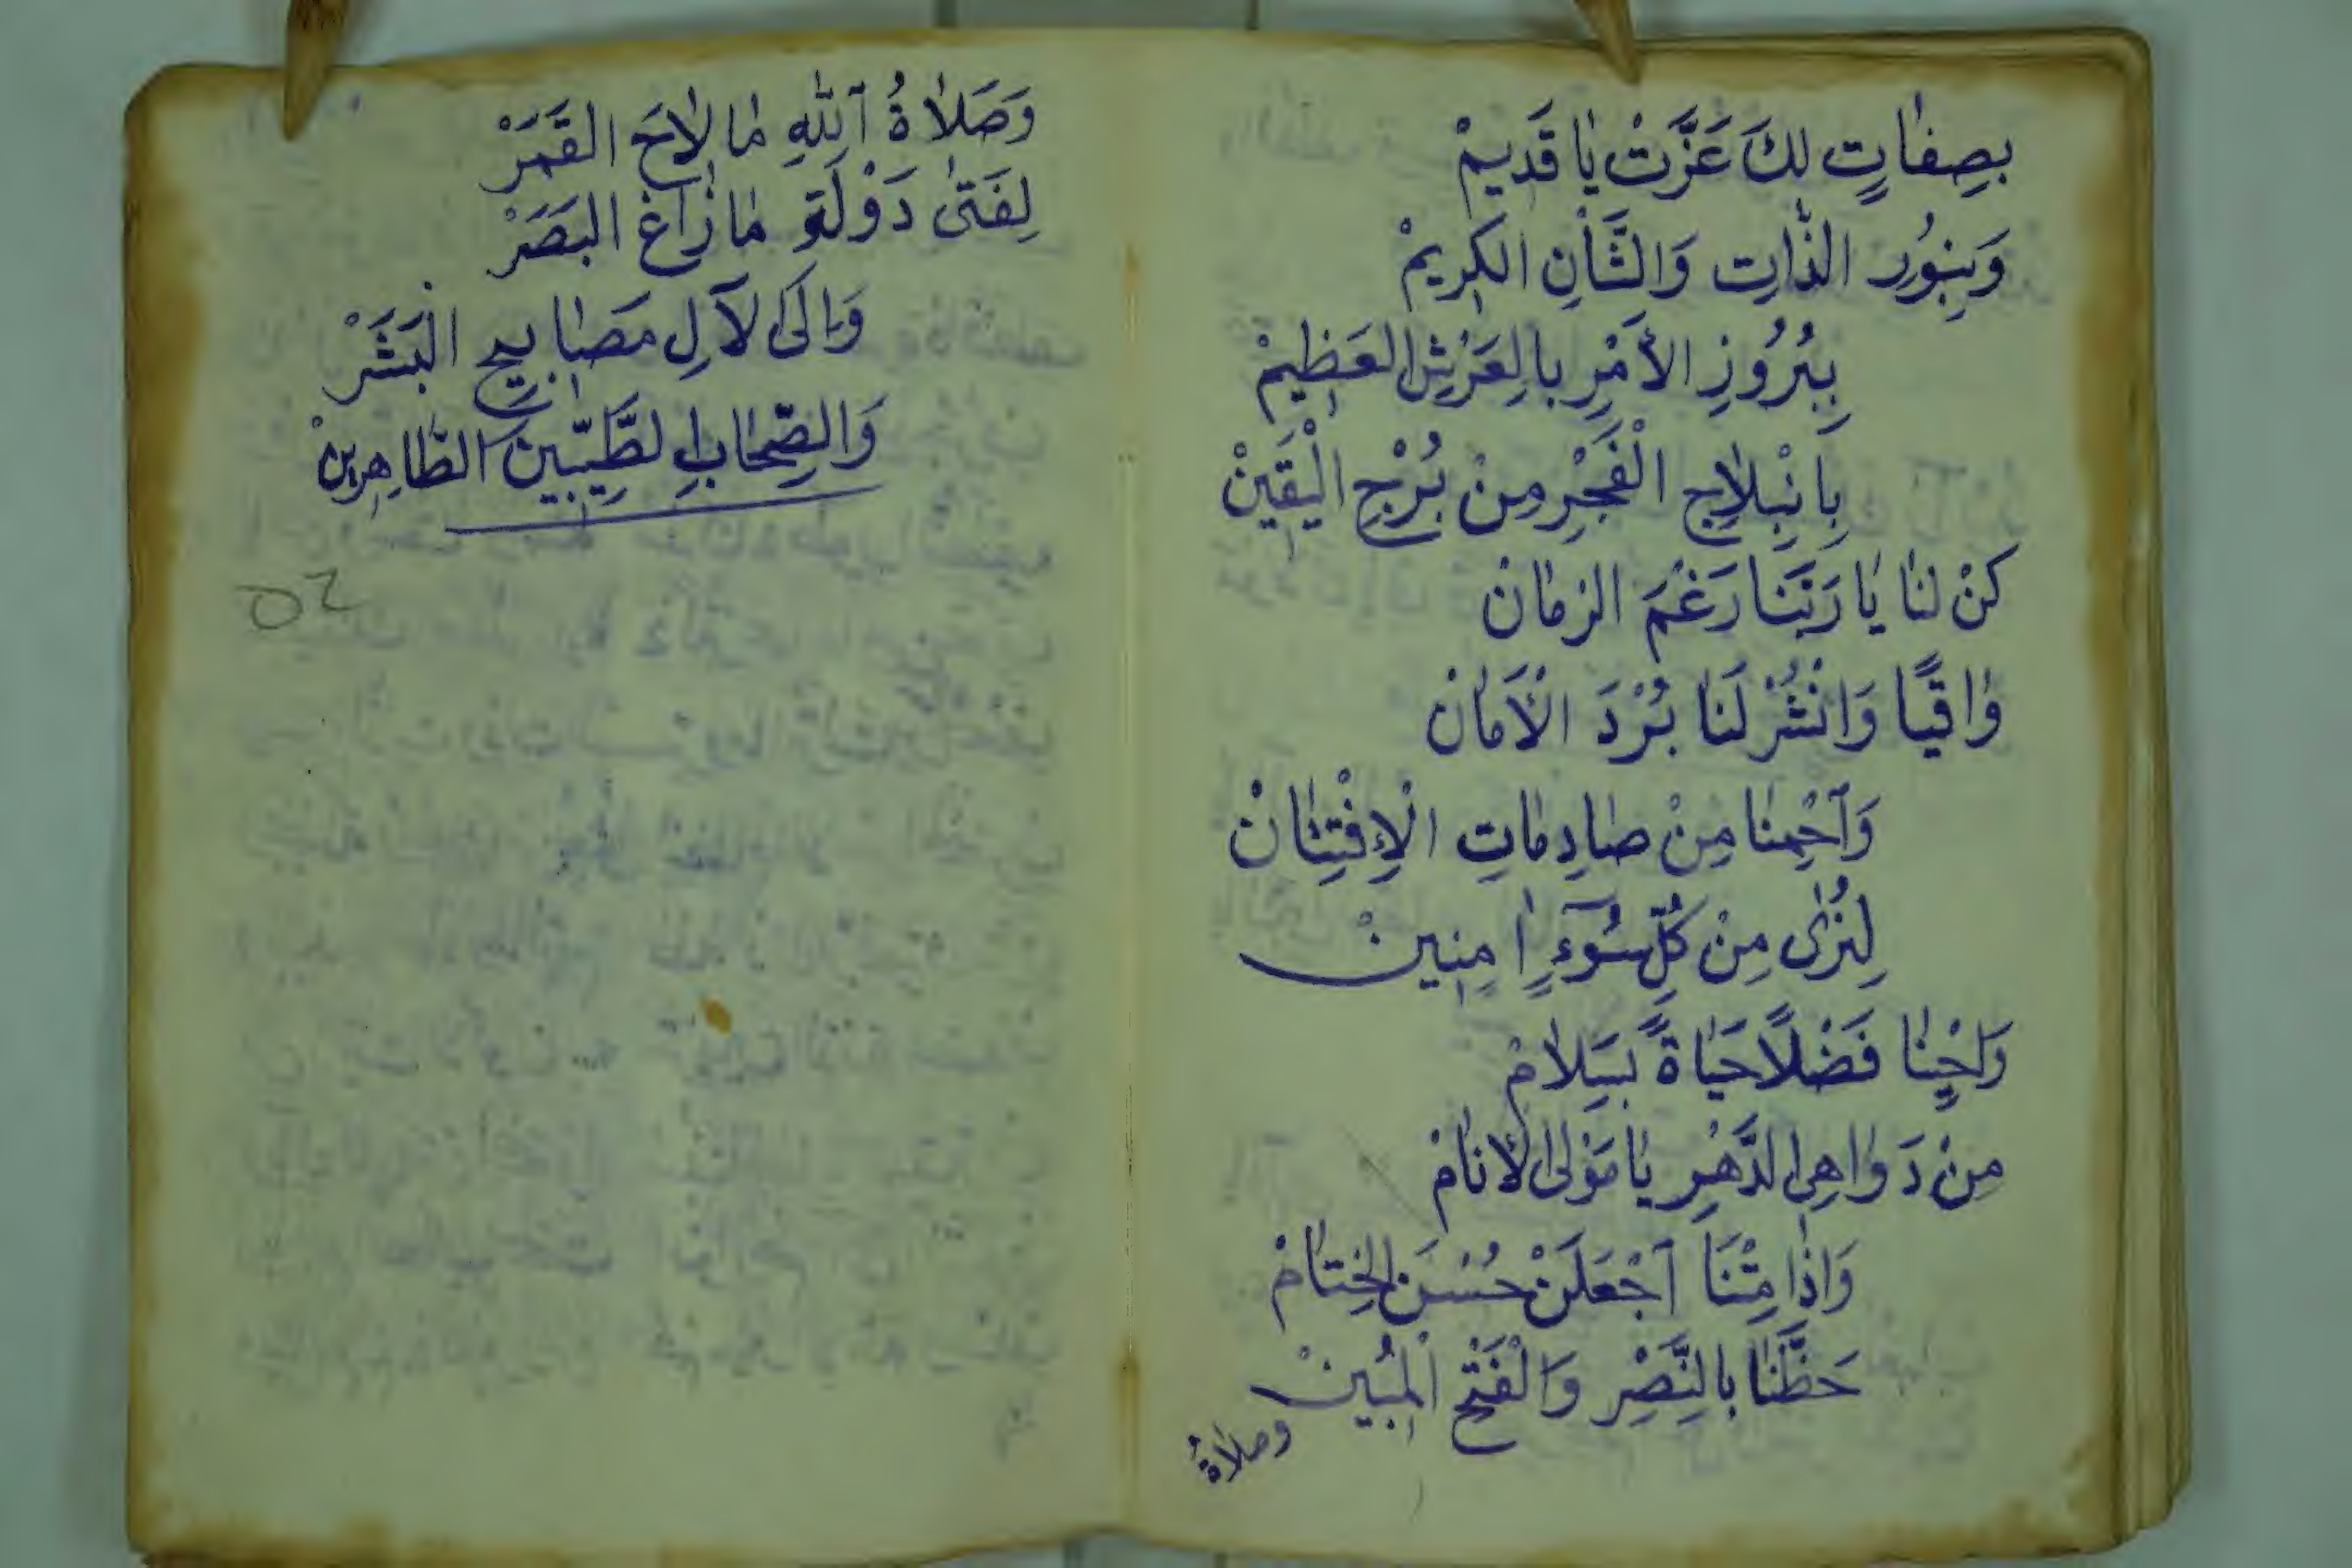 بِصِفَاتٍ لَكَ عَزَّتْ يَا قَدِيمْ
وَبِنُورِ الذَّاتِ وَالشَّانِ الكَرِيمْ
بِبُرُوزِ الأَمْرِ بِالعَرْشِ العَظِيمْ
بِانْبِلَاجِ الْفَجْرِ مِنْ بُرْجِ الْيَقِينْ
كُنْ لَنَا يَا رَبَّنَا رَغْمَ الزمَانْ
وَاقِيًا وَانْشُرْ لَنَا بُرْدَ الْأَمَانْ
وَآحْمِنَا مِنْ صَادِمَاتِ الْإِفْتِتَانْ
لِنُرَى مِنْ كُلِّ سُوءٍ آمِنِينْ
وَاحْيِنَا فَضْلًا حَيَاةً بِسَلَامْ
مِنْ دَوَاهِي الدَّهْرِ يَا مَوْلَى الأَنَامْ
وَاِذَا مِتْنَا آجْعَلَنْ حُسْنَ الخِتَامْ
حَظَّنَا بِالنَّصْرِ وَالْفَتْحِ الْمُبِينْ
وصلاةُ
وَصَلَاةُ آللهِ مَا لَاحَ القَمَرْ
لِفَتَى دَوْلَةِ مَا زَاغَ البَصَرْ
وَاِلَى لآلِ مَصَابِيحِ الْبَشَرْ
وَالصِّحَابِ الطَّيِّبِينَ الطَّاهِرِينْ
٥٢